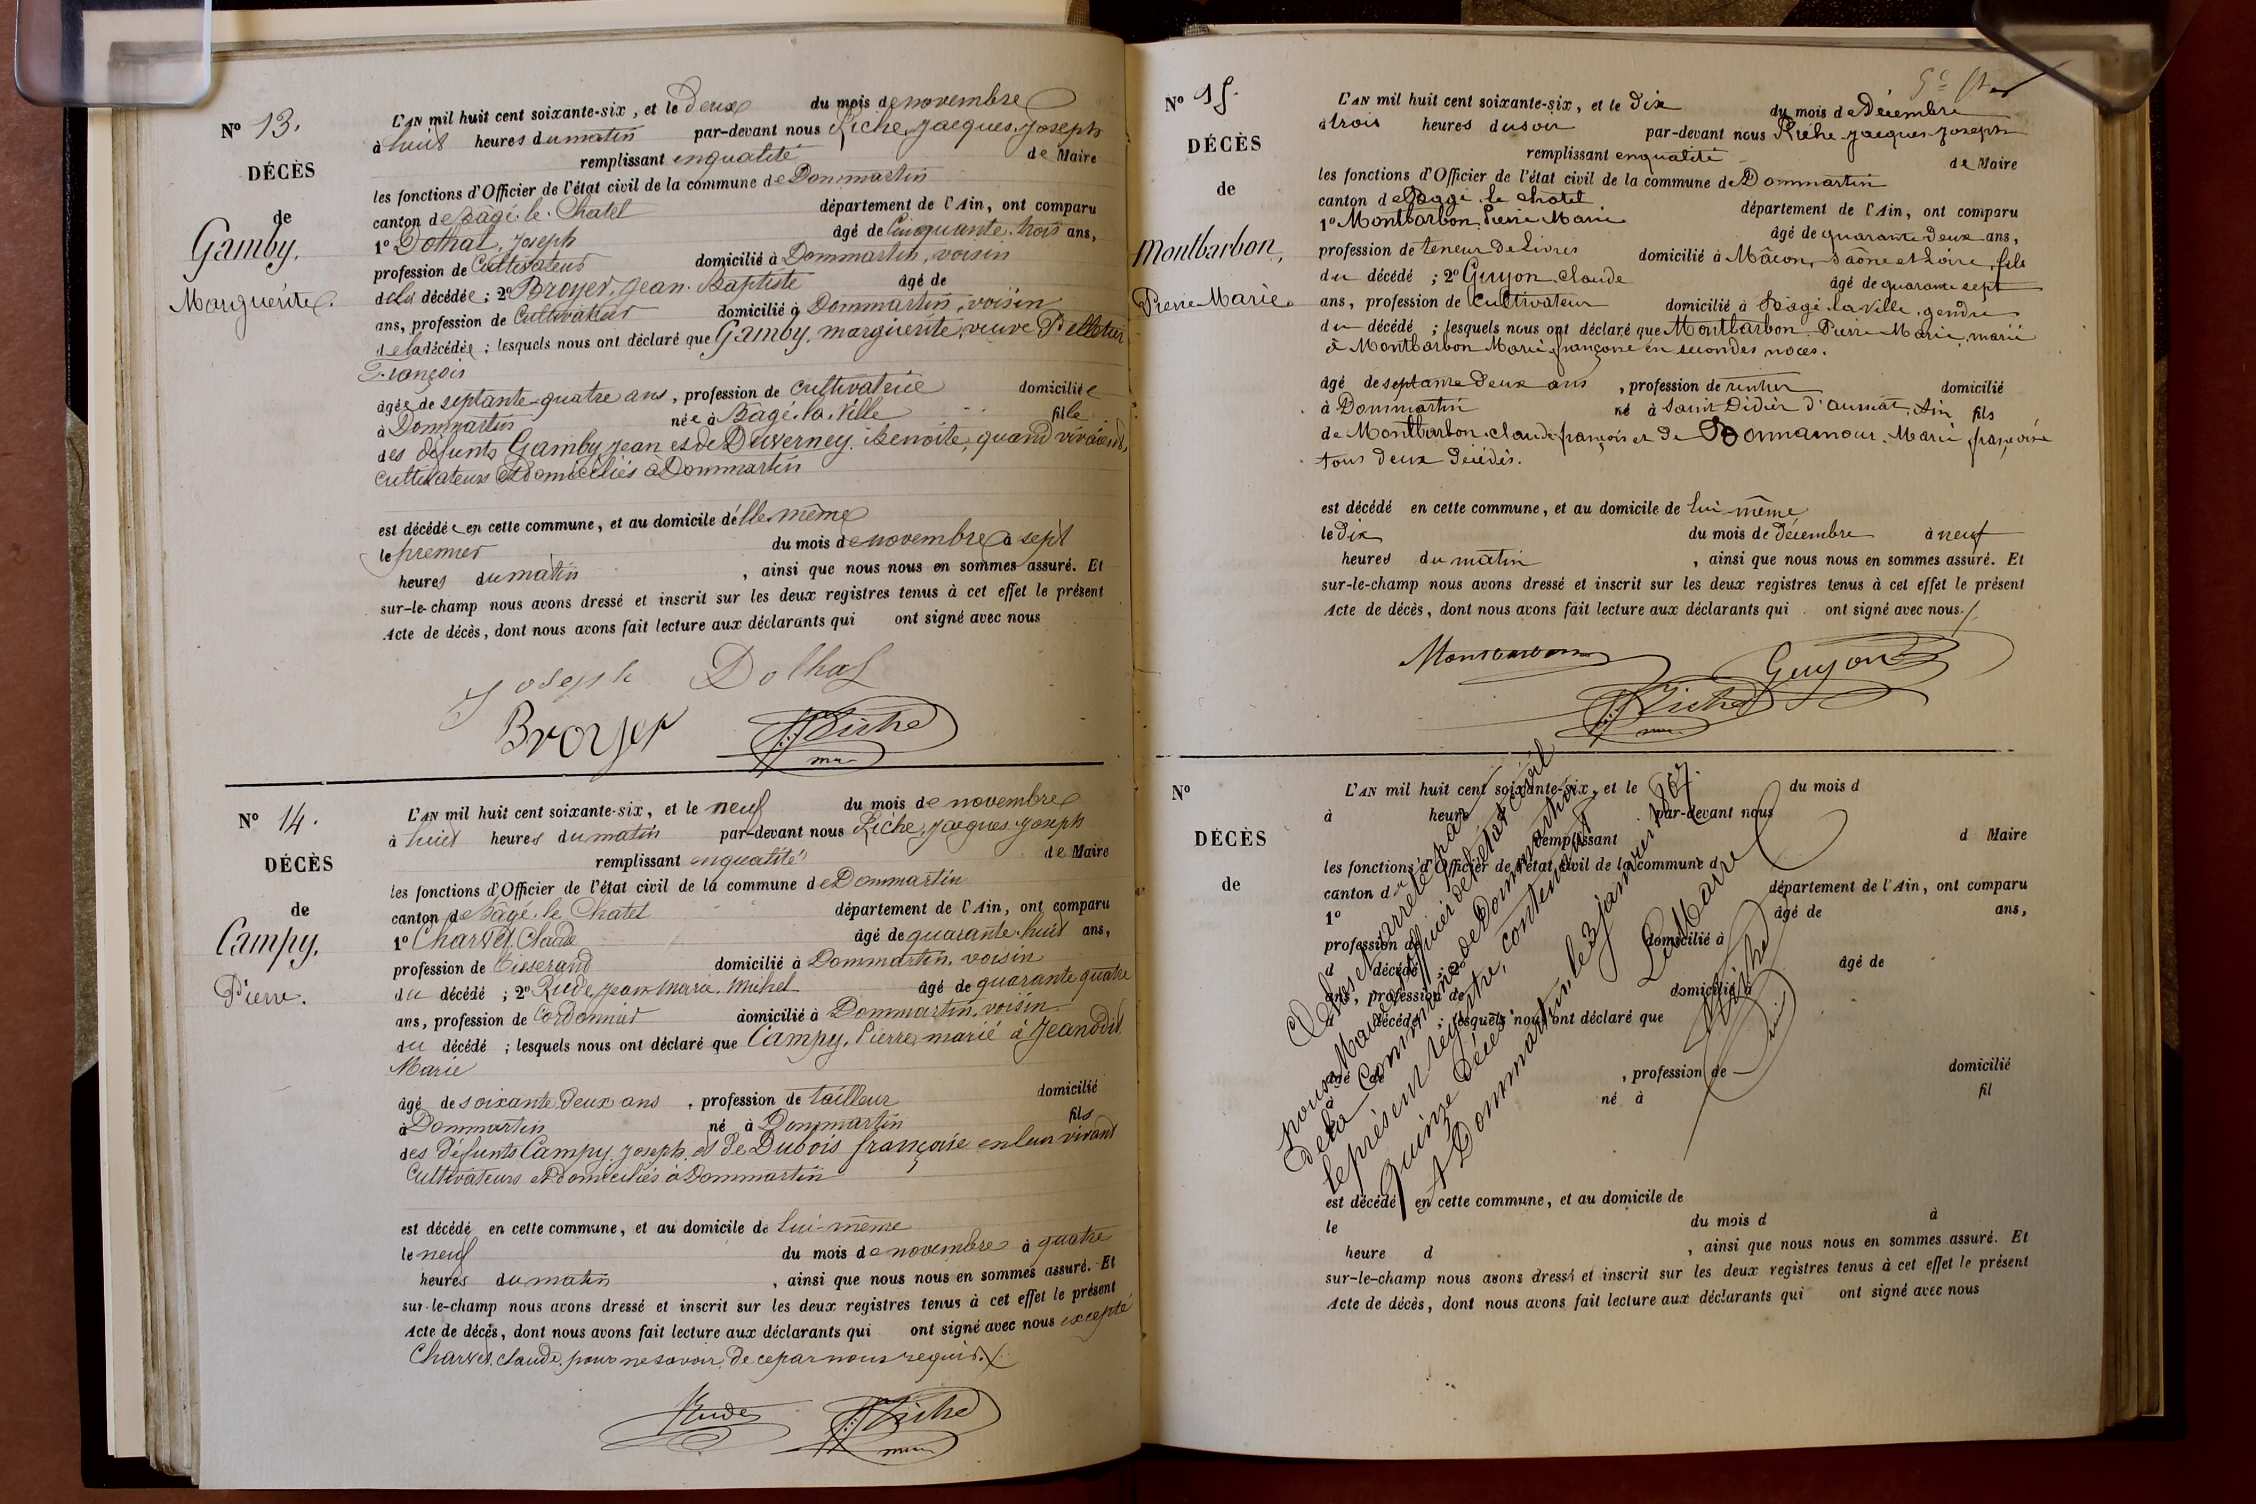 N° 13.
DÉCÈS
de
Gamby,
Marguerite.
L'AN mil huit cent soixante-six, et le Deux du mois de novembre
à huit heures du matin par-devant nous Piche, Jacques, Joseph
remplissant en qualité de Maire
les fonctions d'Officier de l'état civil de la commune de Dommartin
canton de Bâgé-le-Chatel département de l'Ain, ont comparu
1° Dothal, Joseph âgé de Cinquante-trois ans,
profession de Cultivateur domicilié à Dommartin, voisin
de la décédée ; 2° Broyer, Jean-Baptiste âgé de
ans, profession de Cultivateur domicilié à Dommartin, voisin
de la décédée ; lesquels nous ont déclaré que Gamby, marguerite, veuve
François
âgée de septante-quatre ans, profession de cultivatrice domiciliée
à Dommartin née à Bagé-la-Ville fille
des défunts Gamby, Jean et de Duverney, Benoite, quand vivaient,
cultivateurs et domiciliés à Dommartin
est décédée en cette commune, et au domicile d'elle-même
le premier du mois de novembre à sept
heures du matin, ainsi que nous nous en sommes assuré. Et
sur-le-champ nous avons dressé et inscrit sur les deux registres tenus à cet effet le présent
Acte de décès, dont nous avons fait lecture aux déclarants qui ont signé avec nous
Joseph Dothal
Broyer Piche
N° 14.
DÉCÈS
de
Campy,
Pierre.
L'AN mil huit cent soixante-six, et le neuf du mois de novembre
à huit heures du matin par-devant nous Piche, Jacques, Joseph
remplissant en qualité de Maire
les fonctions d'Officier de l'état civil de la commune de Dommartin
canton de Bâgé-le-Chatel département de l'Ain, ont comparu
1° Charvet, Claude âgé de quarante-huit ans,
profession de Tisserand domicilié à Dommartin, voisin
du décédé ; 2° Rude, Jean-Marie, Michel âgé de quarante quatre
ans, profession de Cordonnier domicilié à Dommartin, voisin
du décédé ; lesquels nous ont déclaré que Campy, Pierre, marié à Jeandit
Marie
âgé de soixante deux ans, profession de tailleur domicilié
à Dommartin né à Dommartin fils
des défunts Campy, Joseph, et de Dubois françoise en leur vivant
Cultivateurs et domiciliés à Dommartin
est décédé en cette commune, et au domicile de lui-même
le neuf du mois de novembre à quatre
heures du matin, ainsi que nous nous en sommes assuré. Et
sur-le-champ nous avons dressé et inscrit sur les deux registres tenus à cet effet le présent
Acte de décès, dont nous avons fait lecture aux déclarants qui ont signé avec nous excepté
Charvet, Claude, pour ne savoir, de ce par nous requis.
Rude Piche
N° 15.
DÉCÈS
de
Montbarbon,
Pierre Marie.
L'AN mil huit cent soixante-six, et le dix du mois de Décembre
à trois heures du soir par-devant nous Piche Jacques Joseph
remplissant en qualité de Maire
les fonctions d'Officier de l'état civil de la commune de Dommartin
canton de Baggé-le-chatel département de l'Ain, ont comparu
1° Montbarbon, Pierre Marie âgé de quarante deux ans,
profession de teneur de Livres domicilié à Mâcon, Saône et Loire, fils
du décédé ; 2° Guyon, Claude âgé de quarante sept
ans, profession de cultivateur domicilié à Bâgé-la-Ville, gendre
du décédé ; lesquels nous ont déclaré que Montbarbon Pierre Marie, marié
à Montbarbon Marie françoise en secondes noces.
âgé de septante deux ans, profession de rentier domicilié
à Dommartin né à Saint Didier d'aussiat, Ain fils
de Montbarbon, claude françois et de Bonnamour, Marie françoise
tous deux décédés.
est décédé en cette commune, et au domicile de lui même
le dix du mois de décembre à neuf
heures du matin, ainsi que nous nous en sommes assuré. Et
sur-le-champ nous avons dressé et inscrit sur les deux registres tenus à cet effet le présent
Acte de décès, dont nous avons fait lecture aux déclarants qui ont signé avec nous.
Montbarbon Guyon
Piche
N°
DÉCÈS
de
L'AN mil huit cent soixante-six, et le du mois d
à heure par-devant nous
remplissant d Maire
les fonctions d'Officier de l'état civil de la commune d
canton d département de l'Ain, ont comparu
1° âgé de ans,
profession de domicilié à
d décédé ; 2° âgé de
ans, profession de domicilié à
d décédé ; lesquels nous ont déclaré que
âgé de , profession de domicilié
à né à fil
est décédé en cette commune, et au domicile de
le du mois d à
heure d , ainsi que nous nous en sommes assuré. Et
sur-le-champ nous avons dressé et inscrit sur les deux registres tenus à cet effet le présent
Acte de décès, dont nous avons fait lecture aux déclarants qui ont signé avec nous
Clos et arrêté par
nous Maire, officier de l'état civil
de la Commune de Dommartin
le présent registre, contenant
quinze Décès.
A Dommartin, le 3 janvier 1867.
Le Maire
Piche